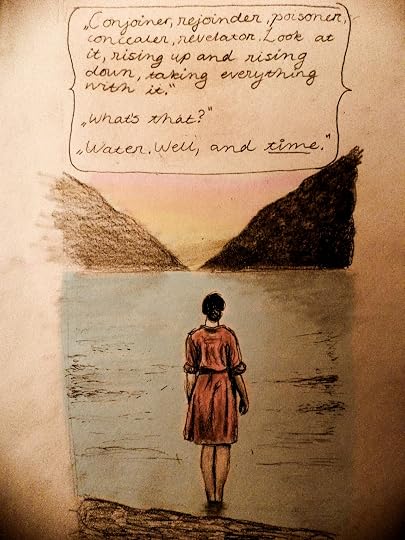 „Conjoiner, rejoinder, poisoner,
concealer, revelator. Look at
it, rising up and rising
down, taking everything
with it."
„What's that?"
„Water. Well, and time."